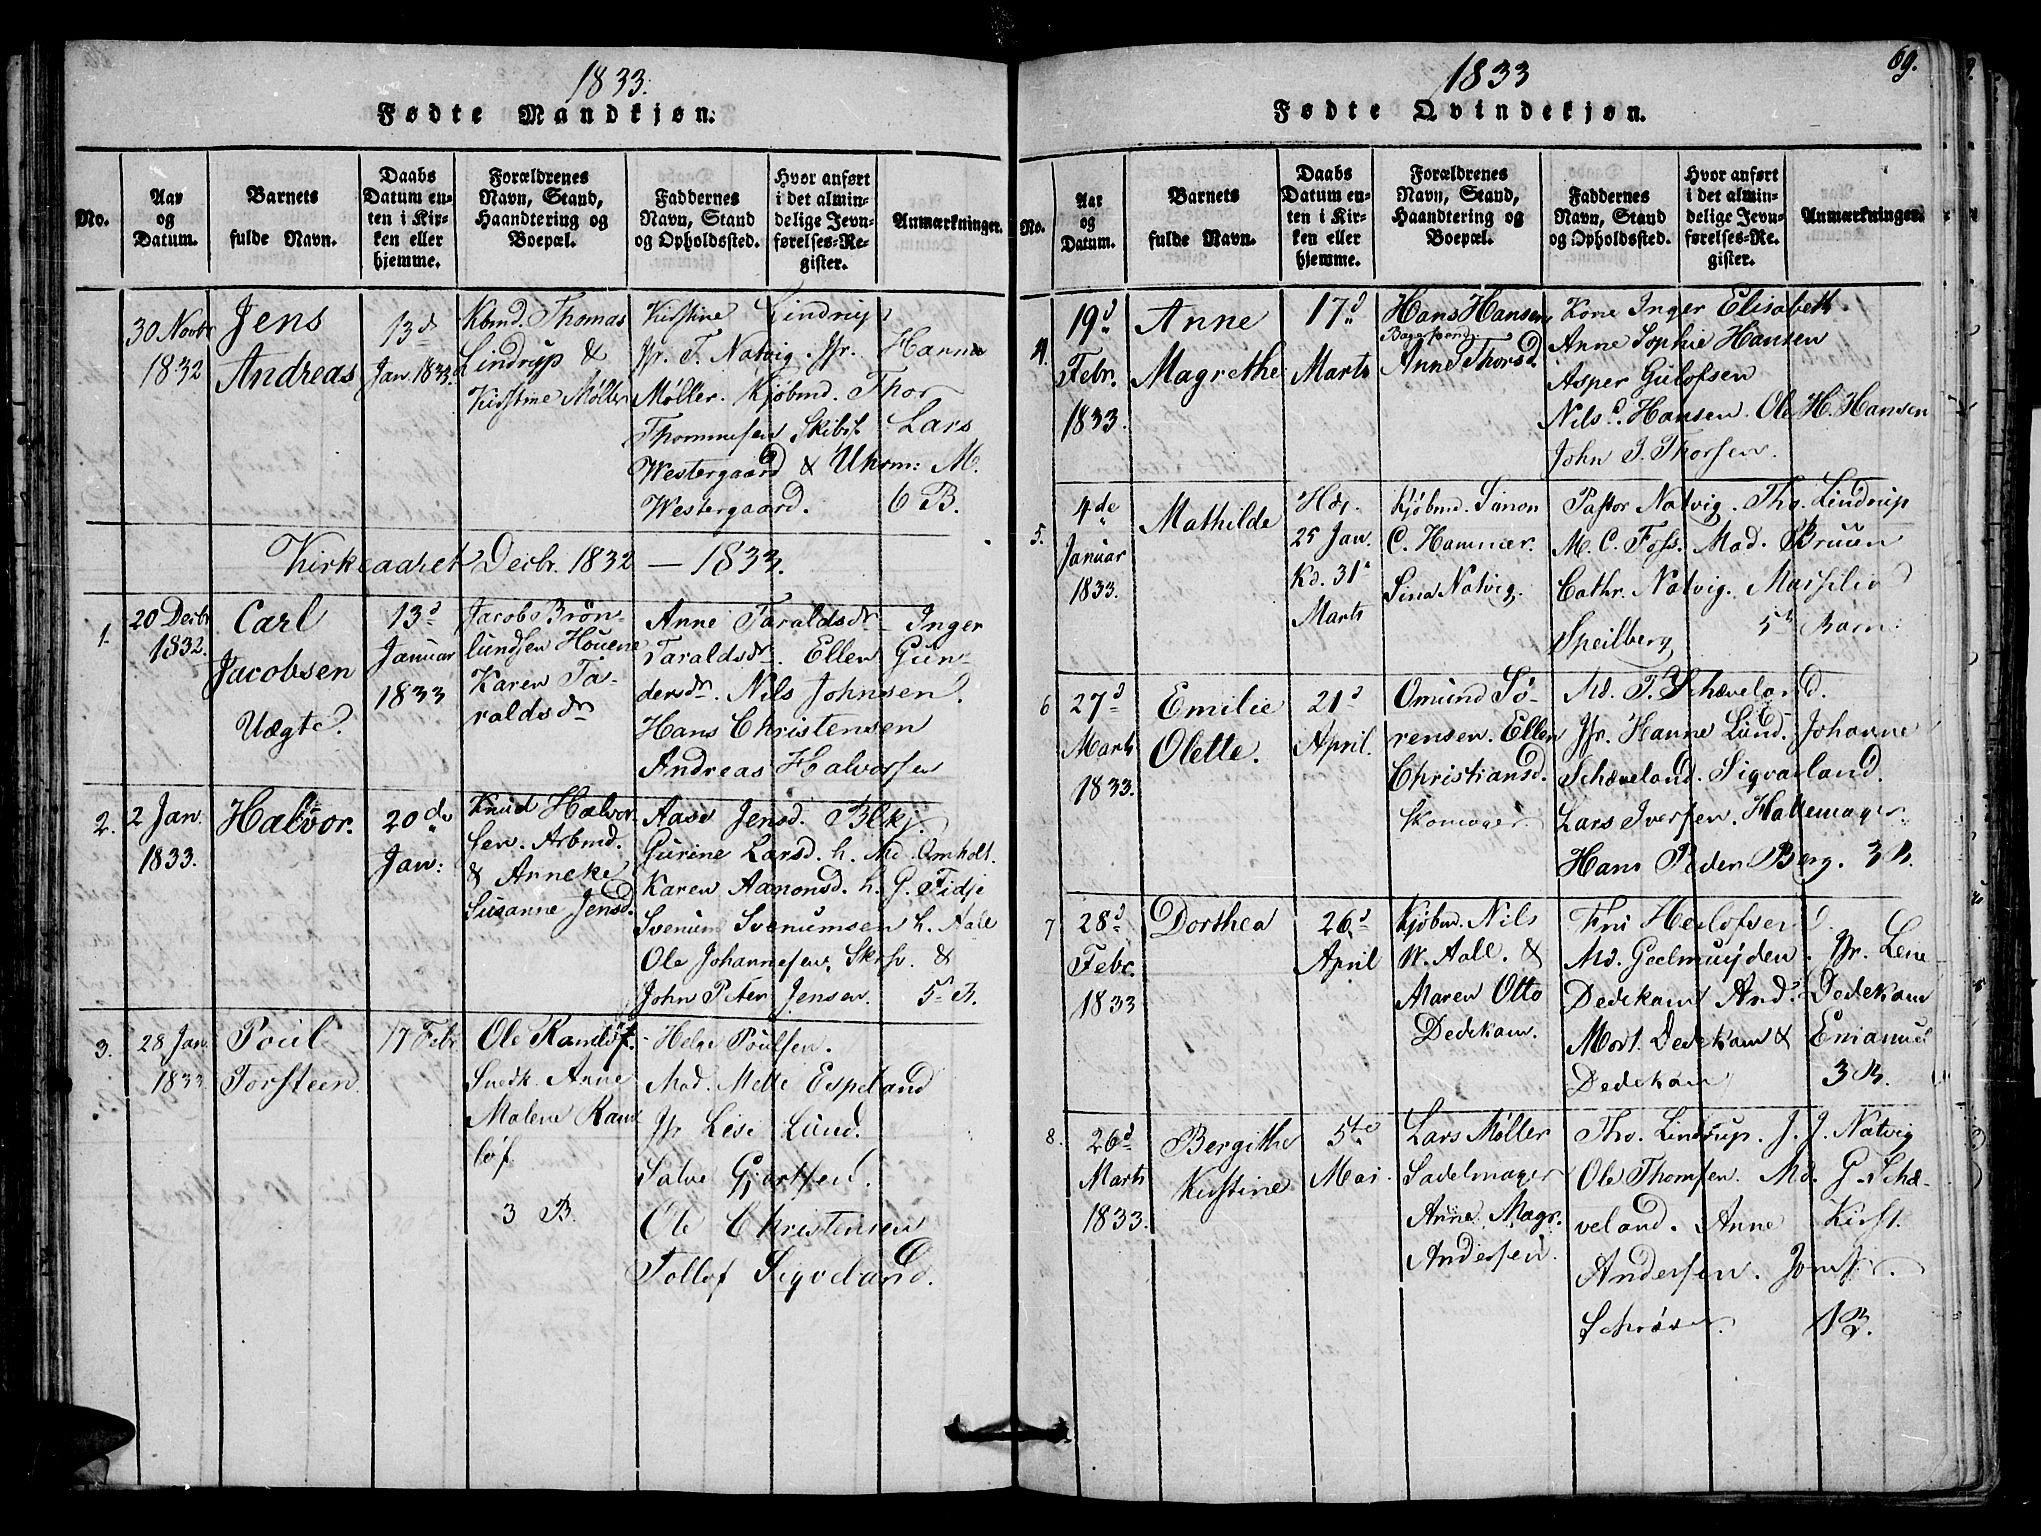 1833.
Fødte Mandkjøn.
No.
Aar og Datum.
Barnets fulde Navn.
Daabs Datum enten i Kirken eller hjemme.
Forældrenes Navn, Stand, Haandtering og Boepæl.
Faddernes Navn, Stand og Opholdssted.
Hvor anført i det almindelige Jevnførelses-Register.
Anmærkninger.
30 Novbr
1832
Jens
Andreas
13d
Jan 1833.
Kbmd. Thomas
Lindrup &
Kirstine Møller
Kirstine Lindrup
Jfr. F. Natvig. Jfr. Hanne
Møller. Kjøbmd. Thor
Thommesen Skibsf. Lars
Westergaard & Uhrm: M.
Westergaard. 6 B.
Kirkeaaret Decbr. 1832 — 1833.
1.
20 Decbr
1832.
Carl
Jacobsen
Uægte.
13d
Januar
1833
Jacob Brön-
lundsen Houene
Karen Ta-
raldsdr
Anne Taraldsdr Inger
Taraldsdr. Ellen Gun-
dersdr. Nils Johnsen
Hans Christensen
Andreas Halvorsen
2.
2 Jan.
1833.
Halvor.
20de
Jan:
Knud Halvor-
sen. Arbmd.
& Anneke
Susanne Jensd.
Aase Jensd. Blkj.
Gurine Larsd. h. Md. Omholt.
Karen Aamonsd. h. G. Fidje
Svenum Svenumsen h. Aall
Ole Johannesen, Skrsv. &
John Peter Jensen. 5 B.
3.
28 Jan.
1833
Poul
Torsteen.
17 Febr
Ole Ramløf.
Snedk. Anne
Malene Ram
løf.
3 B.
Helge Poulsen.
Mad. Mette Espeland
Jfr Lise Lund.
Salve Gjertsen.
Ole Christensen
Tollof Sigveland.
1833
69.
Fødte Qvindekjøn.
No.
Aar og Datum.
Barnets fulde Navn.
Daabs Datum enten i Kirken eller hjemme.
Forældrenes Navn, Stand, Haandtering og Boepæl.
Faddernes Navn, Stand og Opholdssted.
Hvor anført i det almindelige Jevnførelses-Register.
Anmærkninger.
4.
19d
Febr.
1833.
Anne
Magrethe
17d
Marts
Hans Hansen
Anne Thorsd.
Kone Inger Elisabeth.
Anne Sophie Hansen
Asper Gulofsen
Nils C. Hansen. Ole H. Hansen
John J. Thorsen.
5.
4de
Januar
1833.
Mathilde
25 Jan.
Kd. 31
Marts
Kjøbmd. Simon
C. Hammer.
Sina Natvig.
Pastor Natvig. Tho. Lindrup
M. C. Foss. Mad. Bruun
Cathr. Natvig. Marselie
Speilberg 5t Barn.
6
27d
Marts
1833.
Emilie
Olette.
21d
April.
Omund Sö-
rensen. Ellen
Christiansd.
Skomager.
Md. T. Schæveland.
Jfr. Hanne Lund. Johanne
Schæveland. Sigvarland.
Lars Iversen. Hattemager.
Hans Peder Berg. 3 B.
7
28d
Febr.
1833
Dorthea
26d
April
Kjøbmd. Nils
W. Aall. &
Maren Otto
Dedekam.
Fru Herlofsen
Md. Geelmuyden. Jfr. Lene
Dedekam And. Dedekam
Mort. Dedekam & Emanuel
Dedekam 3 B.
8.
26d
Marts
1833.
Bergithe
Kirstine
5te
Mai.
Lars Møller
Sadelmager
Anne Magr.
Andersen.
Tho. Lindrup. J. J. Natvig
Ole Thomsen. Md. G. Schæ-
veland. Anne Kirst.
Andersen. Jomfr.
Schrøder. 1 B.